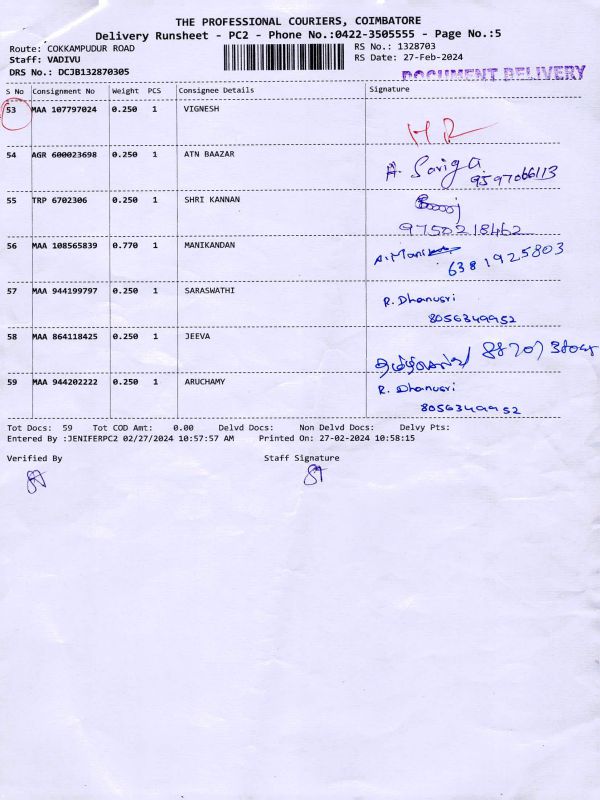 THE PROFESSIONAL COURIERS, COIMBATORE
Delivery Runsheet - PC2 - Phone No.:0422-3505555 - Page No.:5
Route: COKKAMPUDUR ROAD RS No.: 1328703
Staff: VADIVU RS Date: 27-Feb-2024
DRS No.: DCJB132870305 DOCUMENT DELIVERY
S No Consignment No Weight PCS Consignee Details Signature
53 MAA 107797024 0.250 1 VIGNESH
54 AGR 600023698 0.250 1 ATN BAAZAR A. Sariga 9597066113
55 TRP 6702306 0.250 1 SHRI KANNAN
9750218462
56 MAA 108565839 0.770 1 MANIKANDAN
6381925803
57 MAA 944199797 0.250 1 SARASWATHI R. Dhanusri
8056349952
58 MAA 864118425 0.250 1 JEEVA
59 MAA 944202222 0.250 1 ARUCHAMY R. Dhanusri
8056349952
Tot Docs: 59 Tot COD Amt: 0.00 Delvd Docs: Non Delvd Docs: Delvy Pts:
Entered By :JENIFERPC2 02/27/2024 10:57:57 AM Printed On: 27-02-2024 10:58:15
Verified By Staff Signature